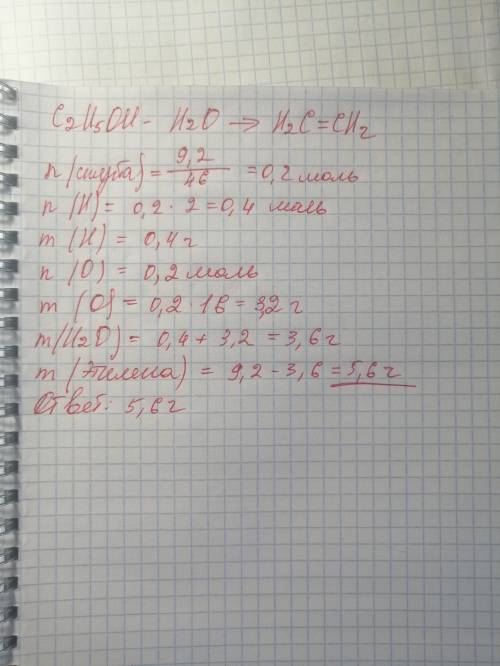 C₂H₅OH - H₂O → H₂C=CH₂
n (спирта) = 9,2 / 46 = 0,2 моль
n (H) = 0,2 · 2 = 0,4 моль
m (H) = 0,4 г
n (O) = 0,2 моль
m (O) = 0,2 · 16 = 3,2 г
m (H₂O) = 0,4 + 3,2 = 3,6 г
m (Этилена) = 9,2 - 3,6 = 5,6 г
Ответ: 5,6 г